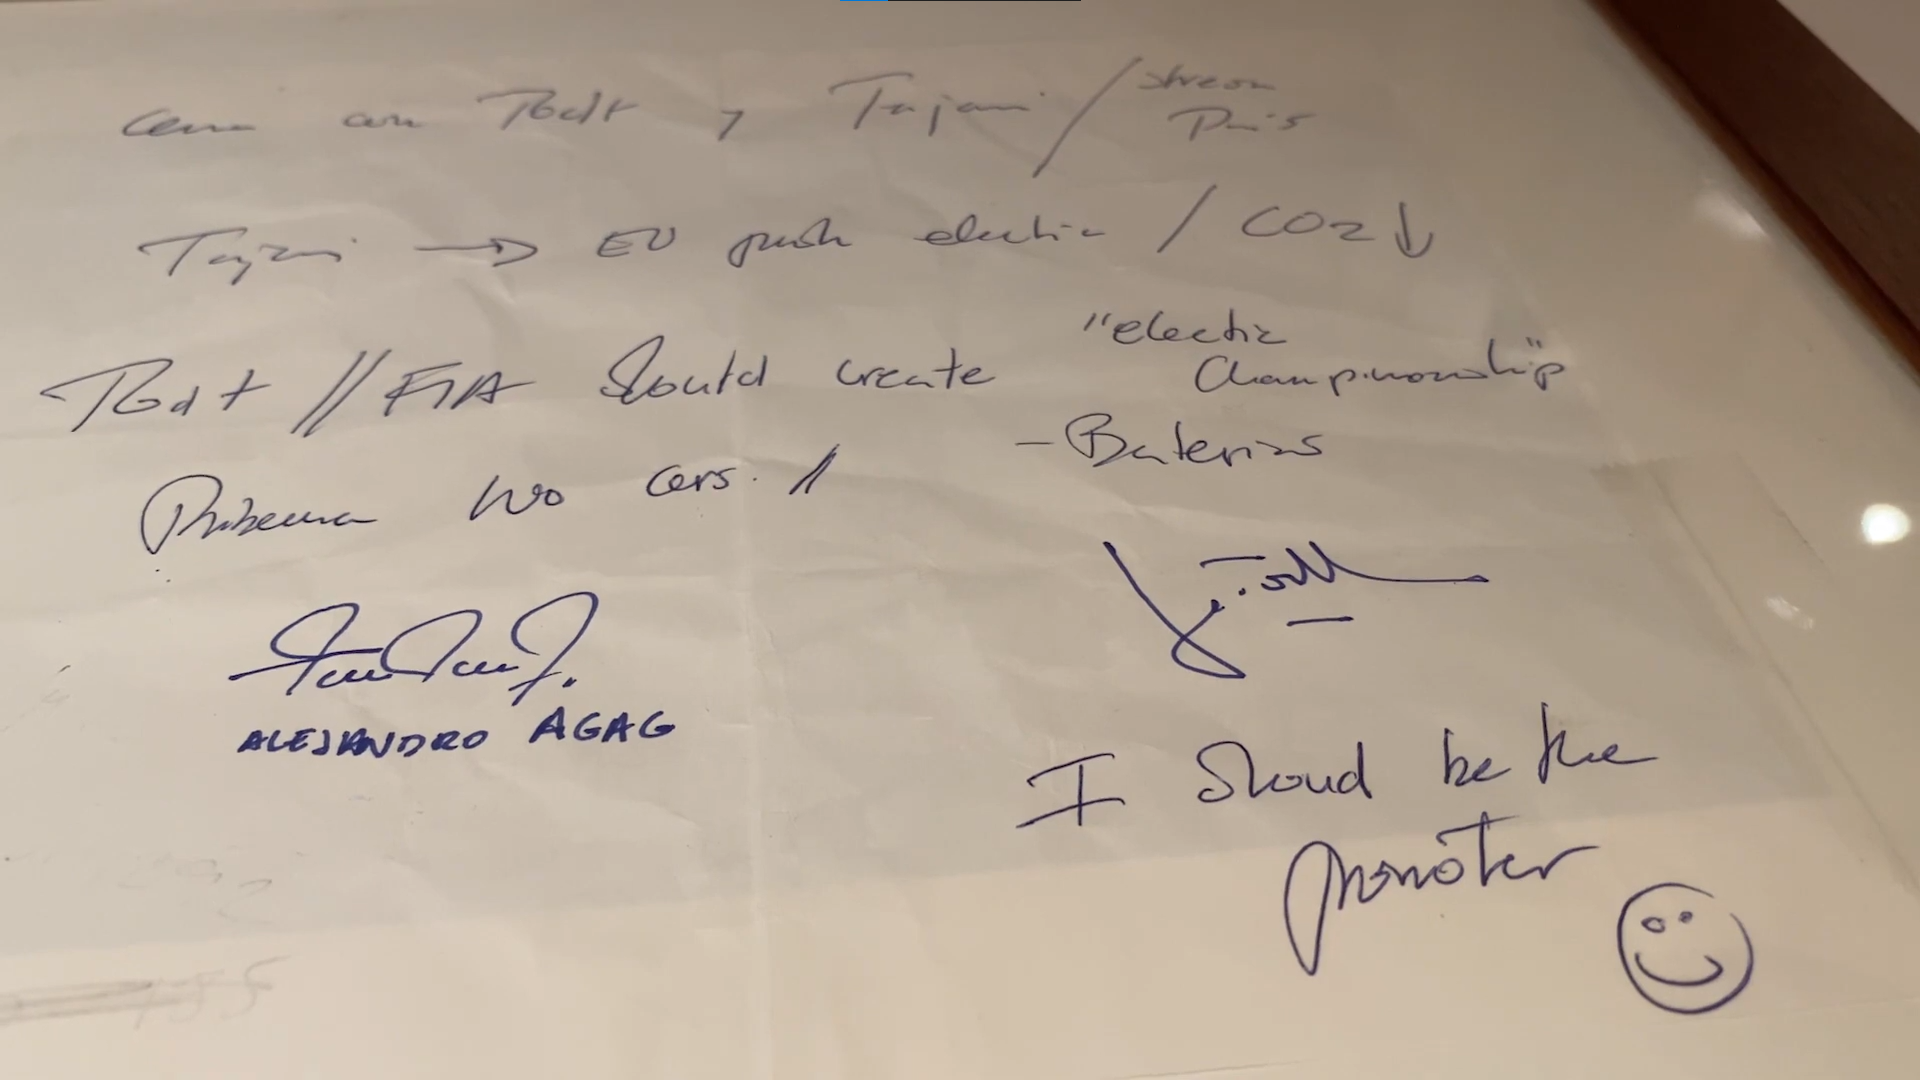 cena con Todt y Tajani / stresa
Paris
Tajani → EU push electric / CO2 ↓
Todt // FIA Should create "electric
Championship"
- Baterias
Problema two cars. //
ALEJANDRO AGAG
I Shoud be the
promoter